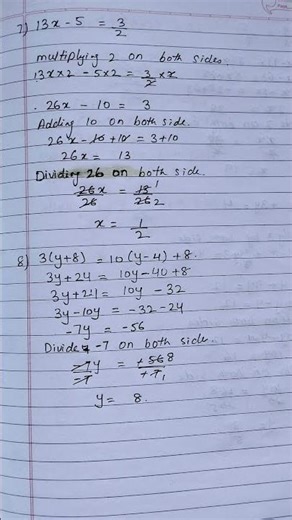 7) 13x - 5 = 3/2
multiplying 2 on both sides.
13x×2 - 5×2 = 3/2 × 2
26x - 10 = 3
Adding 10 on both side.
26x - 10 + 10 = 3+10
26x = 13
Dividing 26 on both side.
26x/26 = 13 1/26 2
x = 1/2
8) 3(y+8) = 10(y-4) + 8.
3y + 24 = 10y - 40 + 8
3y + 24 = 10y - 32
3y - 10y = -32 - 24
-7y = -56
Divide -7 on both side.
-7y/-7 = -56 8/-7 1
y = 8.